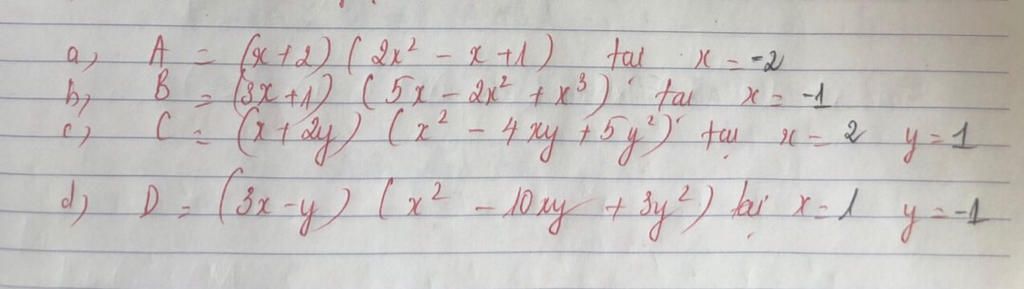 a) A = (x+2) (2x² - x + 1) tại x = -2
b) B = (3x+1) (5x - 2x² + x³) tại x = -1
c) C = (x + 2y) (x² - 4xy + 5y²) tại x = 2 y = 1
d) D = (3x - y) (x² - 10xy + 3y²) tại x = 1 y = -1